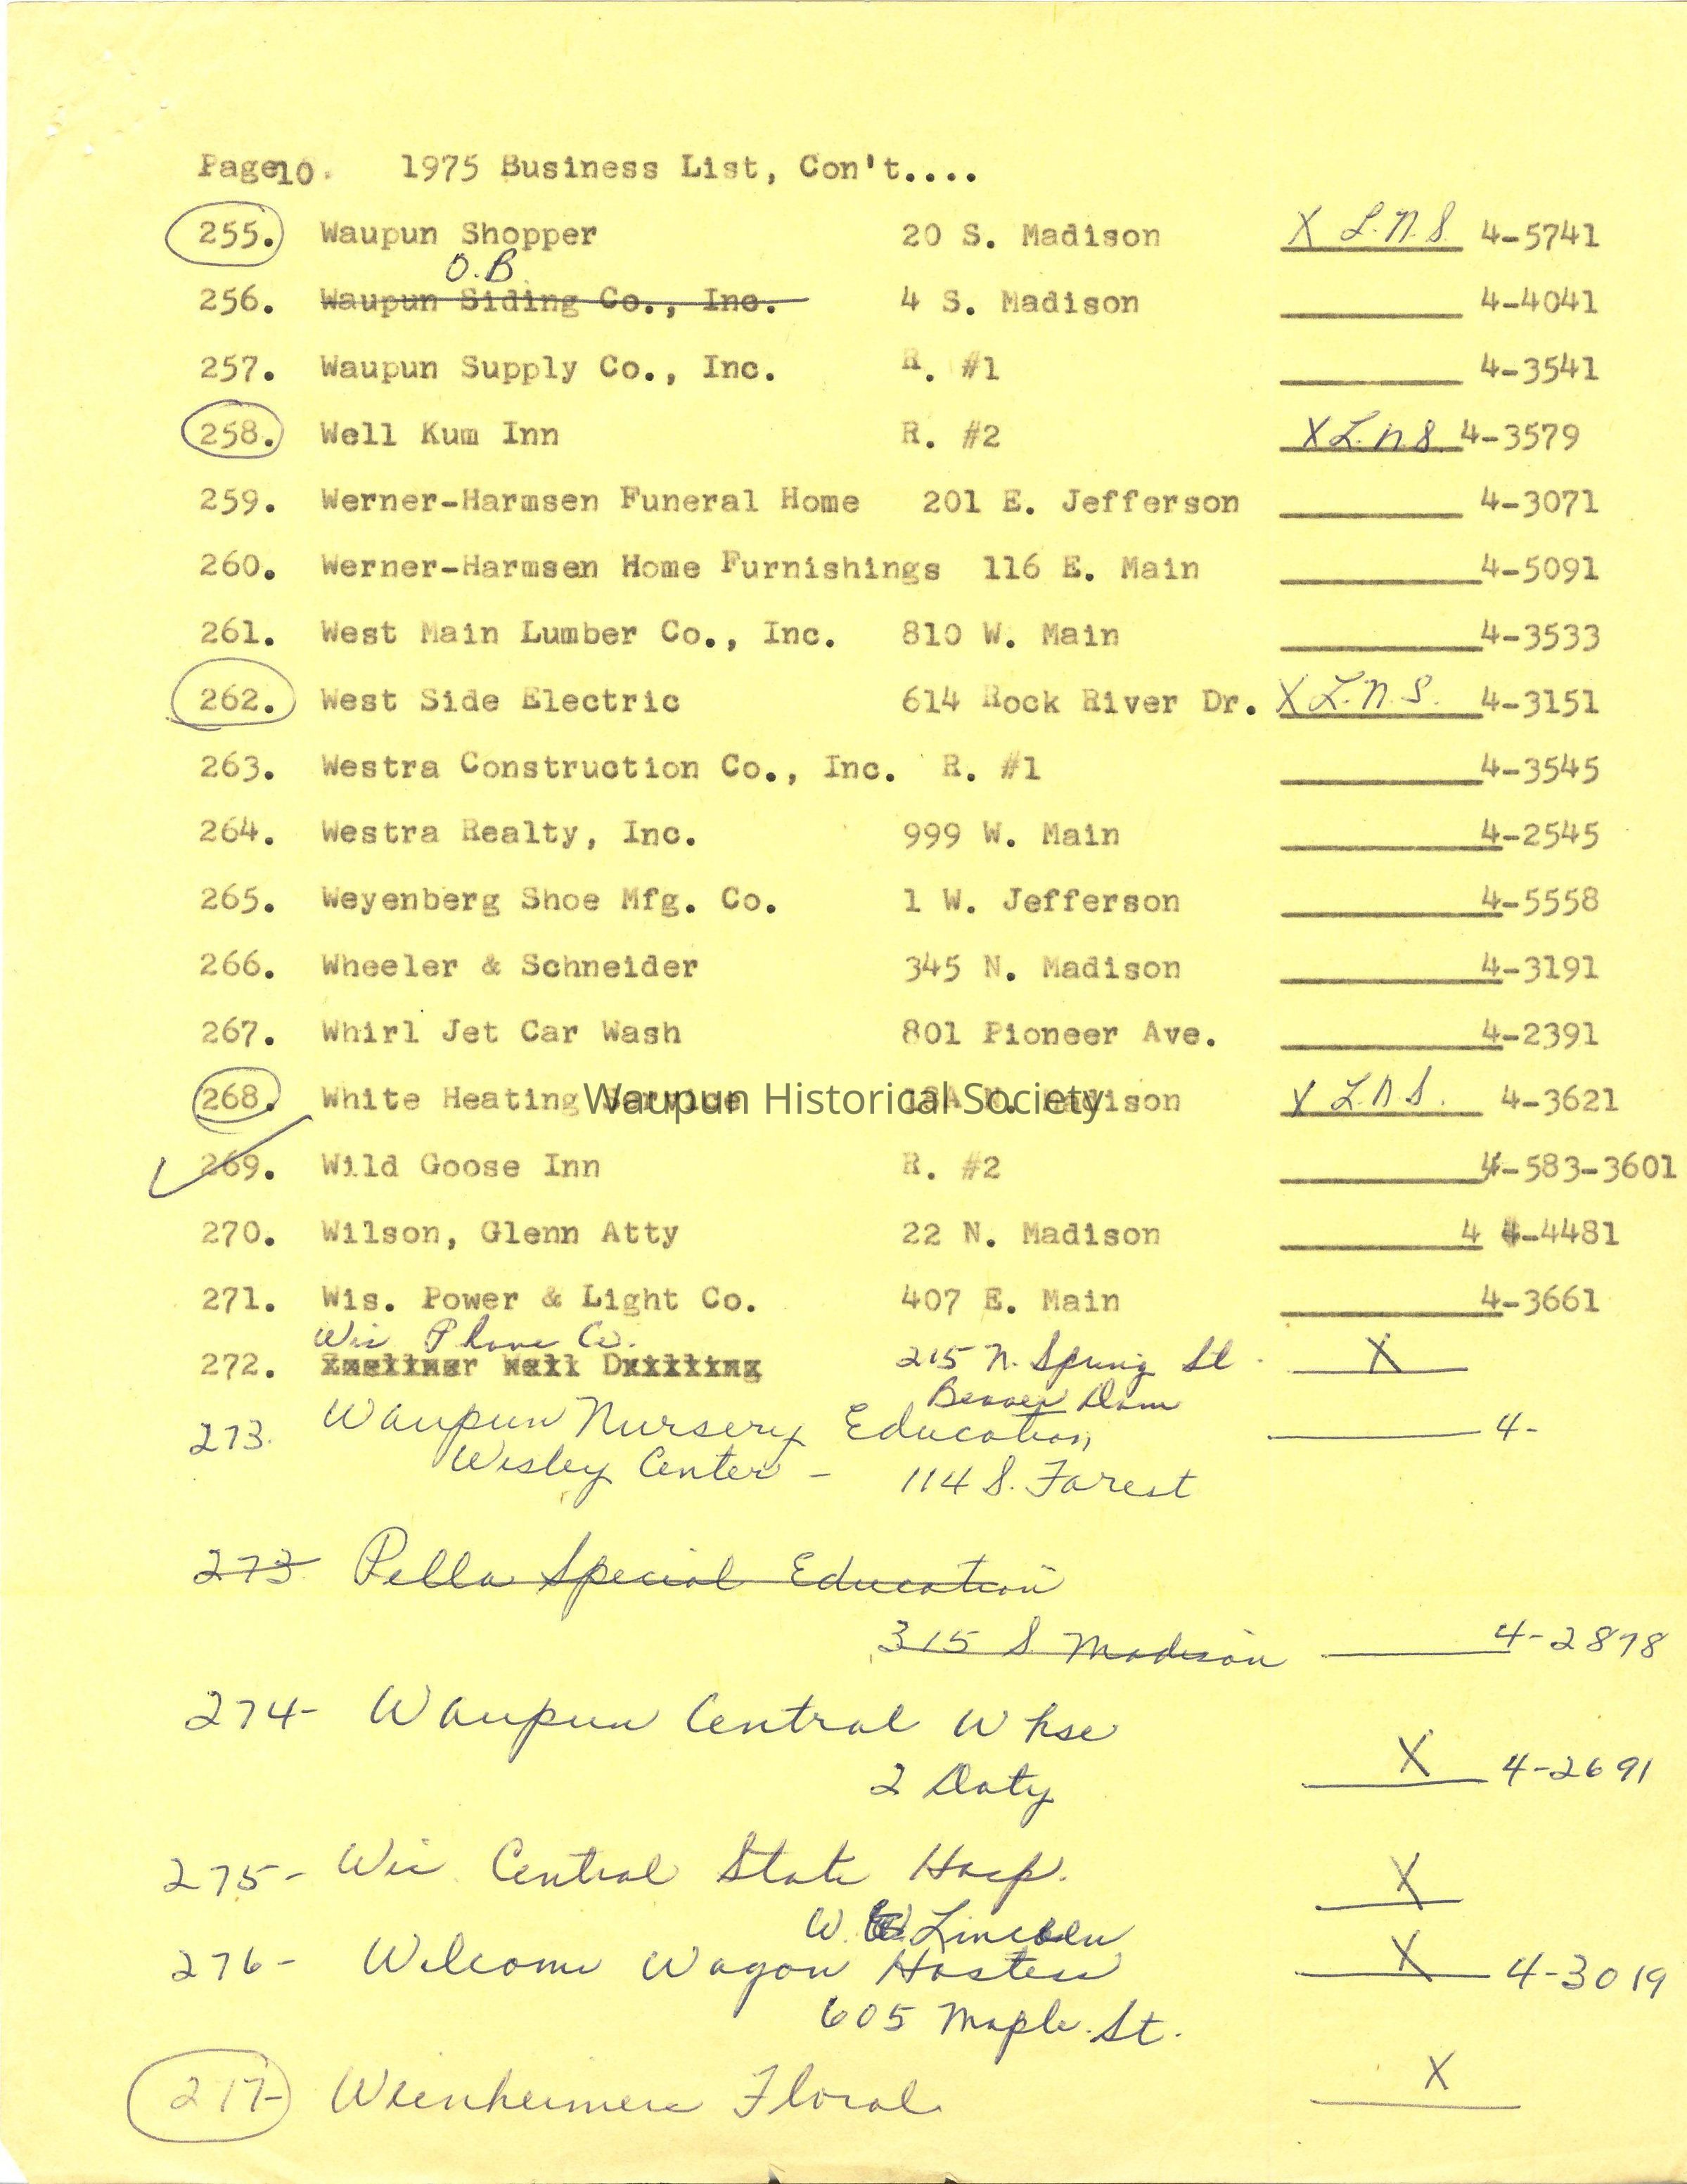 Page10. 1975 Business List, Con't....
255. Waupun Shopper 20 S. Madison X L.N.S. 4-5741
O.B.
256. Waupun Siding Co., Inc. 4 S. Madison 4-4041
257. Waupun Supply Co., Inc. R. #1 4-3541
258. Well Kum Inn R. #2 X L.N.S. 4-3579
259. Werner-Harmsen Funeral Home 201 E. Jefferson 4-3071
260. Werner-Harmsen Home Furnishings 116 E. Main 4-5091
261. West Main Lumber Co., Inc. 810 W. Main 4-3533
262. West Side Electric 614 Rock River Dr. X L.N.S. 4-3151
263. Westra Construction Co., Inc. R. #1 4-3545
264. Westra Realty, Inc. 999 W. Main 4-2545
265. Weyenberg Shoe Mfg. Co. 1 W. Jefferson 4-5558
266. Wheeler & Schneider 345 N. Madison 4-3191
267. Whirl Jet Car Wash 801 Pioneer Ave. 4-2391
268. White Heating Service Madison X L.N.S. 4-3621
Waupun Historical Society
269. Wild Goose Inn R. #2 4-583-3601
270. Wilson, Glenn Atty 22 N. Madison 4 4-4481
271. Wis. Power & Light Co. 407 E. Main 4-3661
Wis Phone Co.
272. 215 N. Spring St. X
Beaver Dam
273. Waupun Nursery Education 4-
Wesley Center - 114 S. Forest
273 Pella Special Education
315 S Madison 4-2878
274- Waupun Central Whse
2 Doty X 4-2691
275- Wis Central State Hosp. X
W. Lincoln
276- Welcome Wagon Hostess X 4-3019
605 Maple St.
277- Weinheimers Floral X